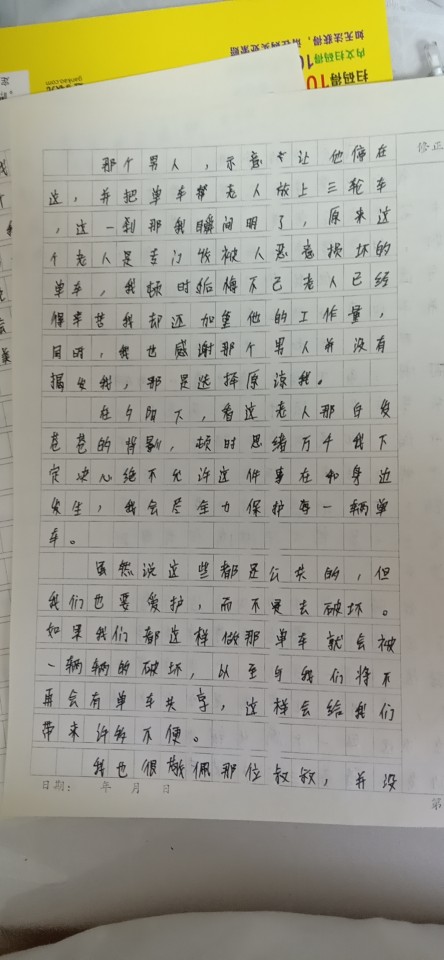 如无法获得,
内文扫码得1
扫码得10
gankao.com
修正
那个男人,示意让他停在
这,并把单车帮老人放上三轮车
,这一刹那我瞬间明了,原来这
个老人是专门收被人恶意损坏的
单车,我顿时后悔不已老人已经
很辛苦我却还加重他的工作量,
同时,我也感谢那个男人并没有
揭发我,那是选择原谅我。
在夕阳下,看这老人那白发
苍苍的背影,顿时思绪万千我下
定决心绝不允许这件事在身边
发生,我会尽全力保护每一辆单
车。
虽然说这些都还公共的,但
我们也要爱护,而不是去破坏。
如果我们都这样做那单车就会被
一辆辆的破坏,以至与我们将不
再会有单车共享,这样会给我们
带来许多不便。
我也很敬佩那位叔叔,并没
日期: 年 月 日
第